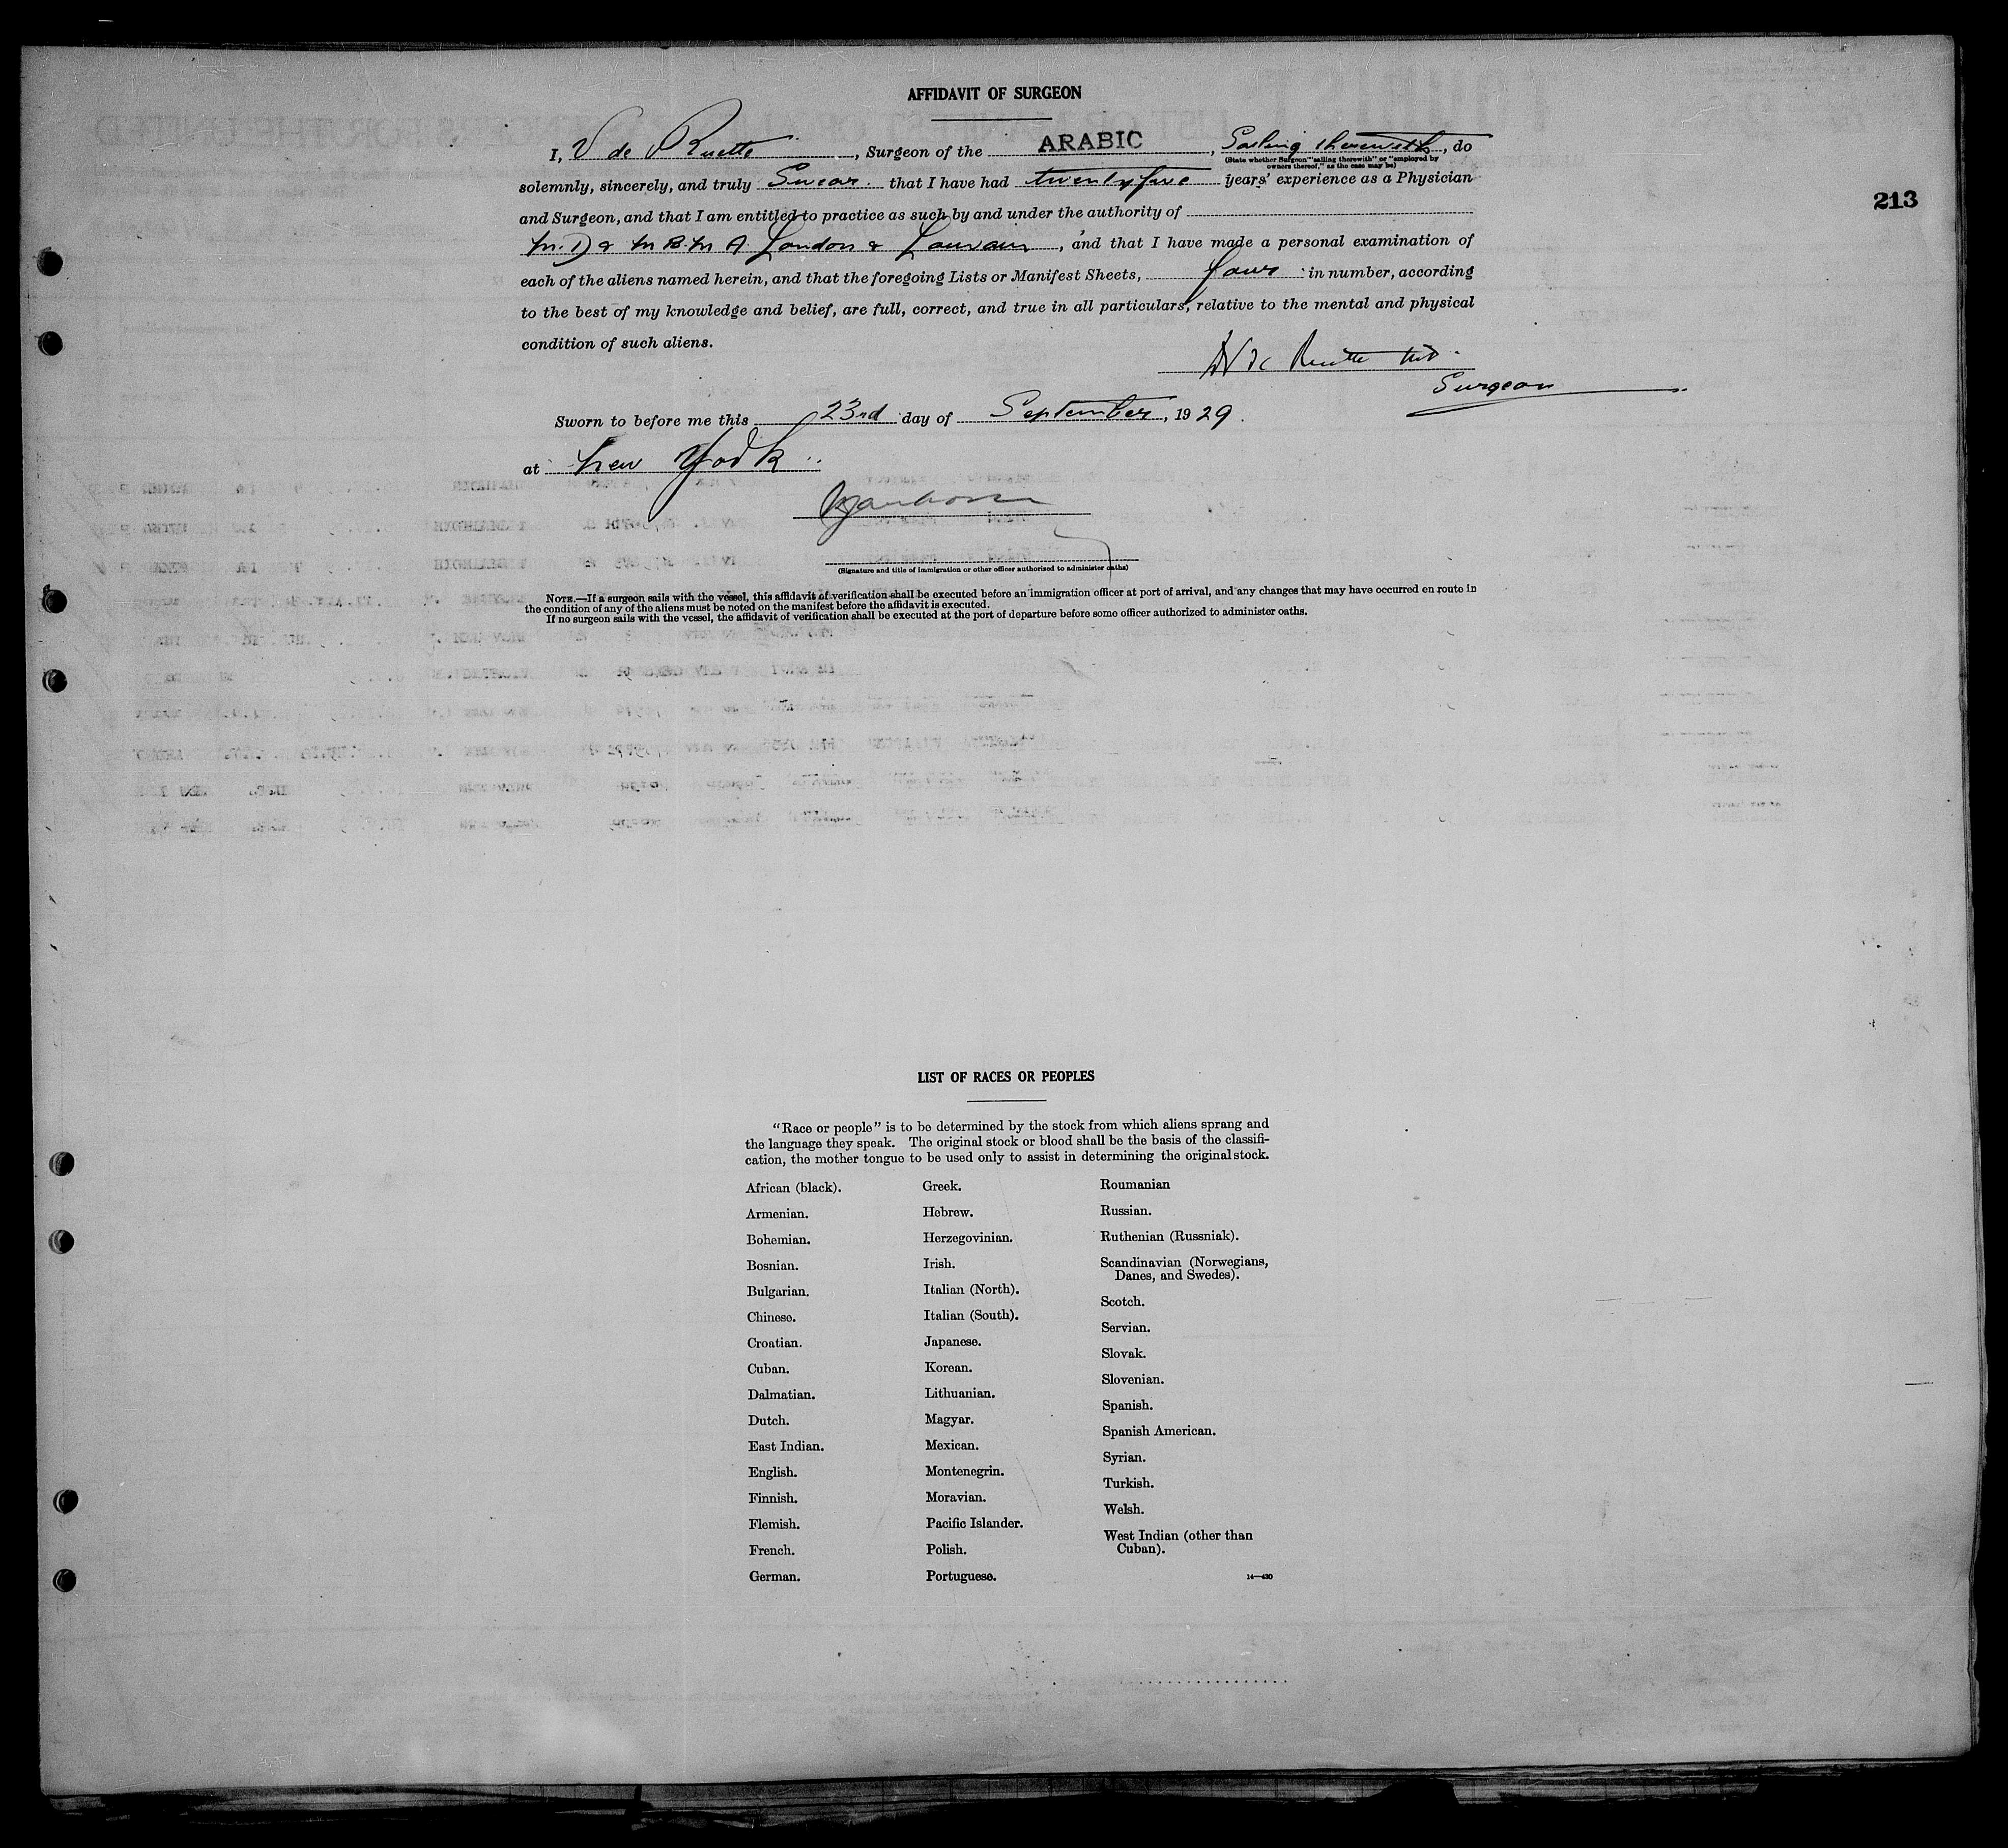 AFFIDAVIT OF SURGEON
I, V de Ruette, Surgeon of the ARABIC, Sailing therewith, do
(State whether Surgeon "sailing therewith" or "employed by
owners thereof," as the case may be)
solemnly, sincerely, and truly Swear that I have had twenty five years' experience as a Physician
213
and Surgeon, and that I am entitled to practice as such by and under the authority of
M.D & London & Louvain, and that I have made a personal examination of
each of the aliens named herein, and that the foregoing Lists or Manifest Sheets, four in number, according
to the best of my knowledge and belief, are full, correct, and true in all particulars, relative to the mental and physical
condition of such aliens.
de Ruette MD.
Surgeon
Sworn to before me this 23rd day of September, 1929.
at New York
(Signature and title of immigration or other officer authorized to administer oaths)
NOTE.—If a surgeon sails with the vessel, this affidavit of verification shall be executed before an immigration officer at port of arrival, and any changes that may have occurred en route in
the condition of any of the aliens must be noted on the manifest before the affidavit is executed.
If no surgeon sails with the vessel, the affidavit of verification shall be executed at the port of departure before some officer authorized to administer oaths.
LIST OF RACES OR PEOPLES
"Race or people" is to be determined by the stock from which aliens sprang and
the language they speak. The original stock or blood shall be the basis of the classifi-
cation, the mother tongue to be used only to assist in determining the original stock.
African (black).
Armenian.
Bohemian.
Bosnian.
Bulgarian.
Chinese.
Croatian.
Cuban.
Dalmatian.
Dutch.
East Indian.
English.
Finnish.
Flemish.
French.
German.
Greek.
Hebrew.
Herzegovinian.
Irish.
Italian (North).
Italian (South).
Japanese.
Korean.
Lithuanian.
Magyar.
Mexican.
Montenegrin.
Moravian.
Pacific Islander.
Polish.
Portuguese.
Roumanian
Russian.
Ruthenian (Russniak).
Scandinavian (Norwegians,
Danes, and Swedes).
Scotch.
Servian.
Slovak.
Slovenian.
Spanish.
Spanish American.
Syrian.
Turkish.
Welsh.
West Indian (other than
Cuban).
14—430